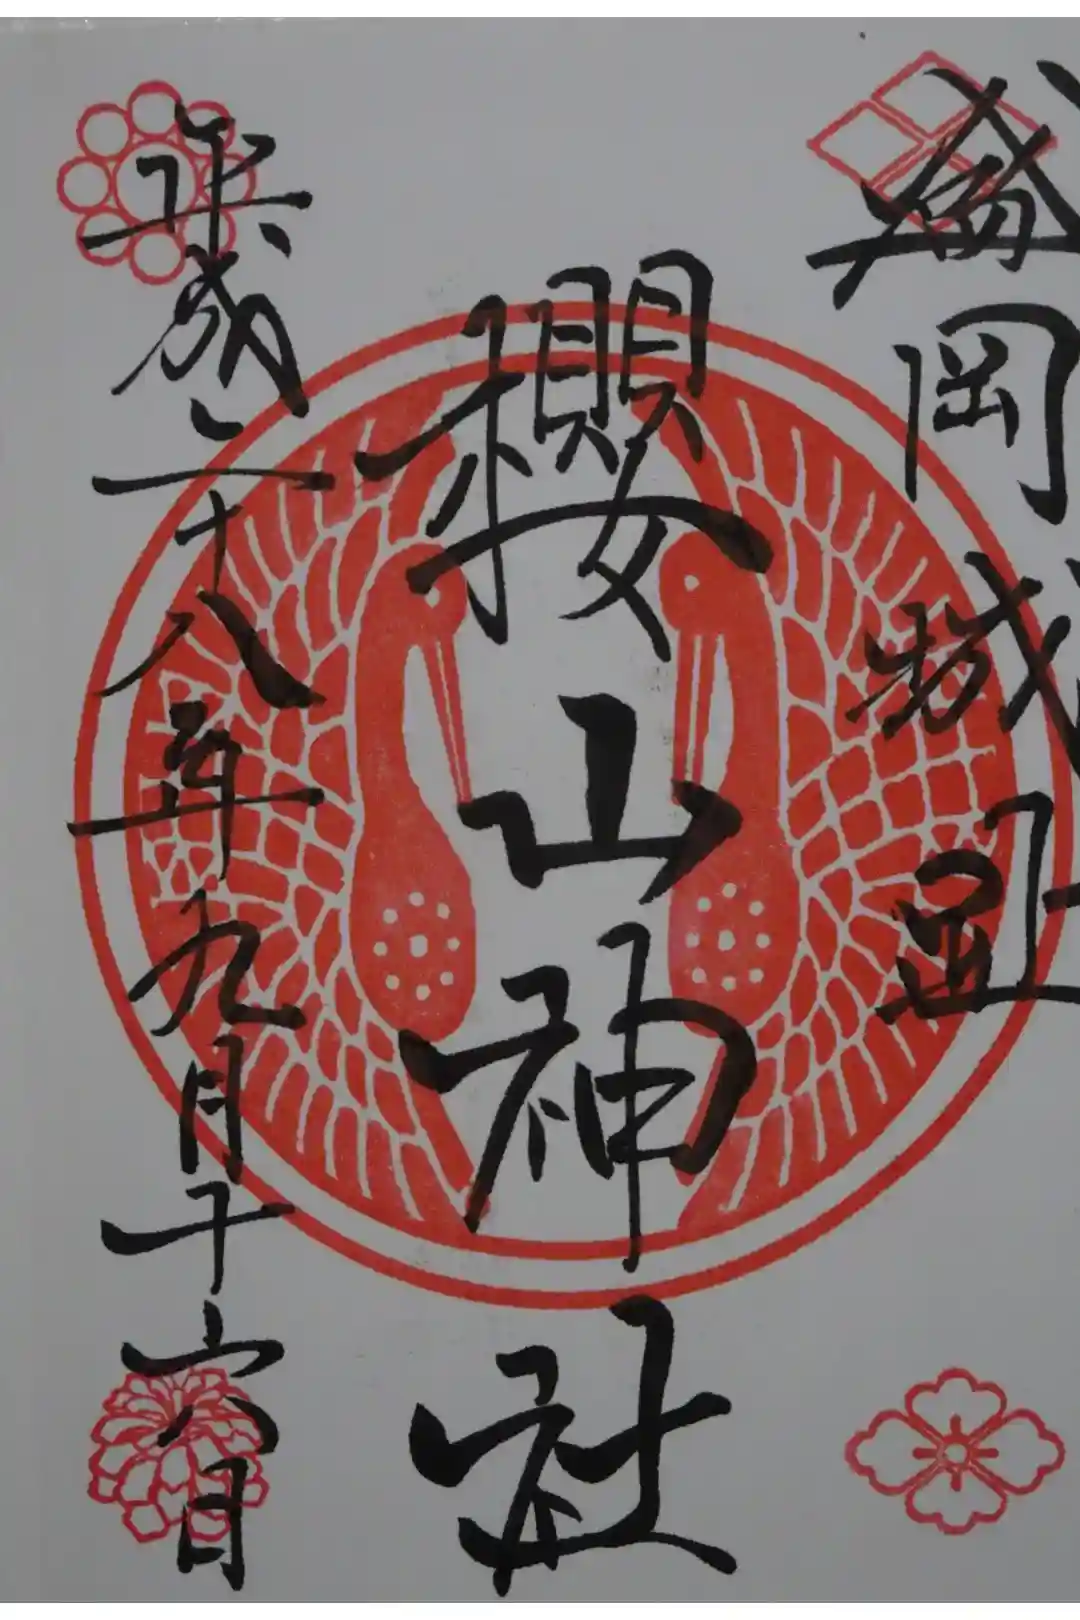 盛岡城趾
櫻山神社
平成二十八年九月十六日